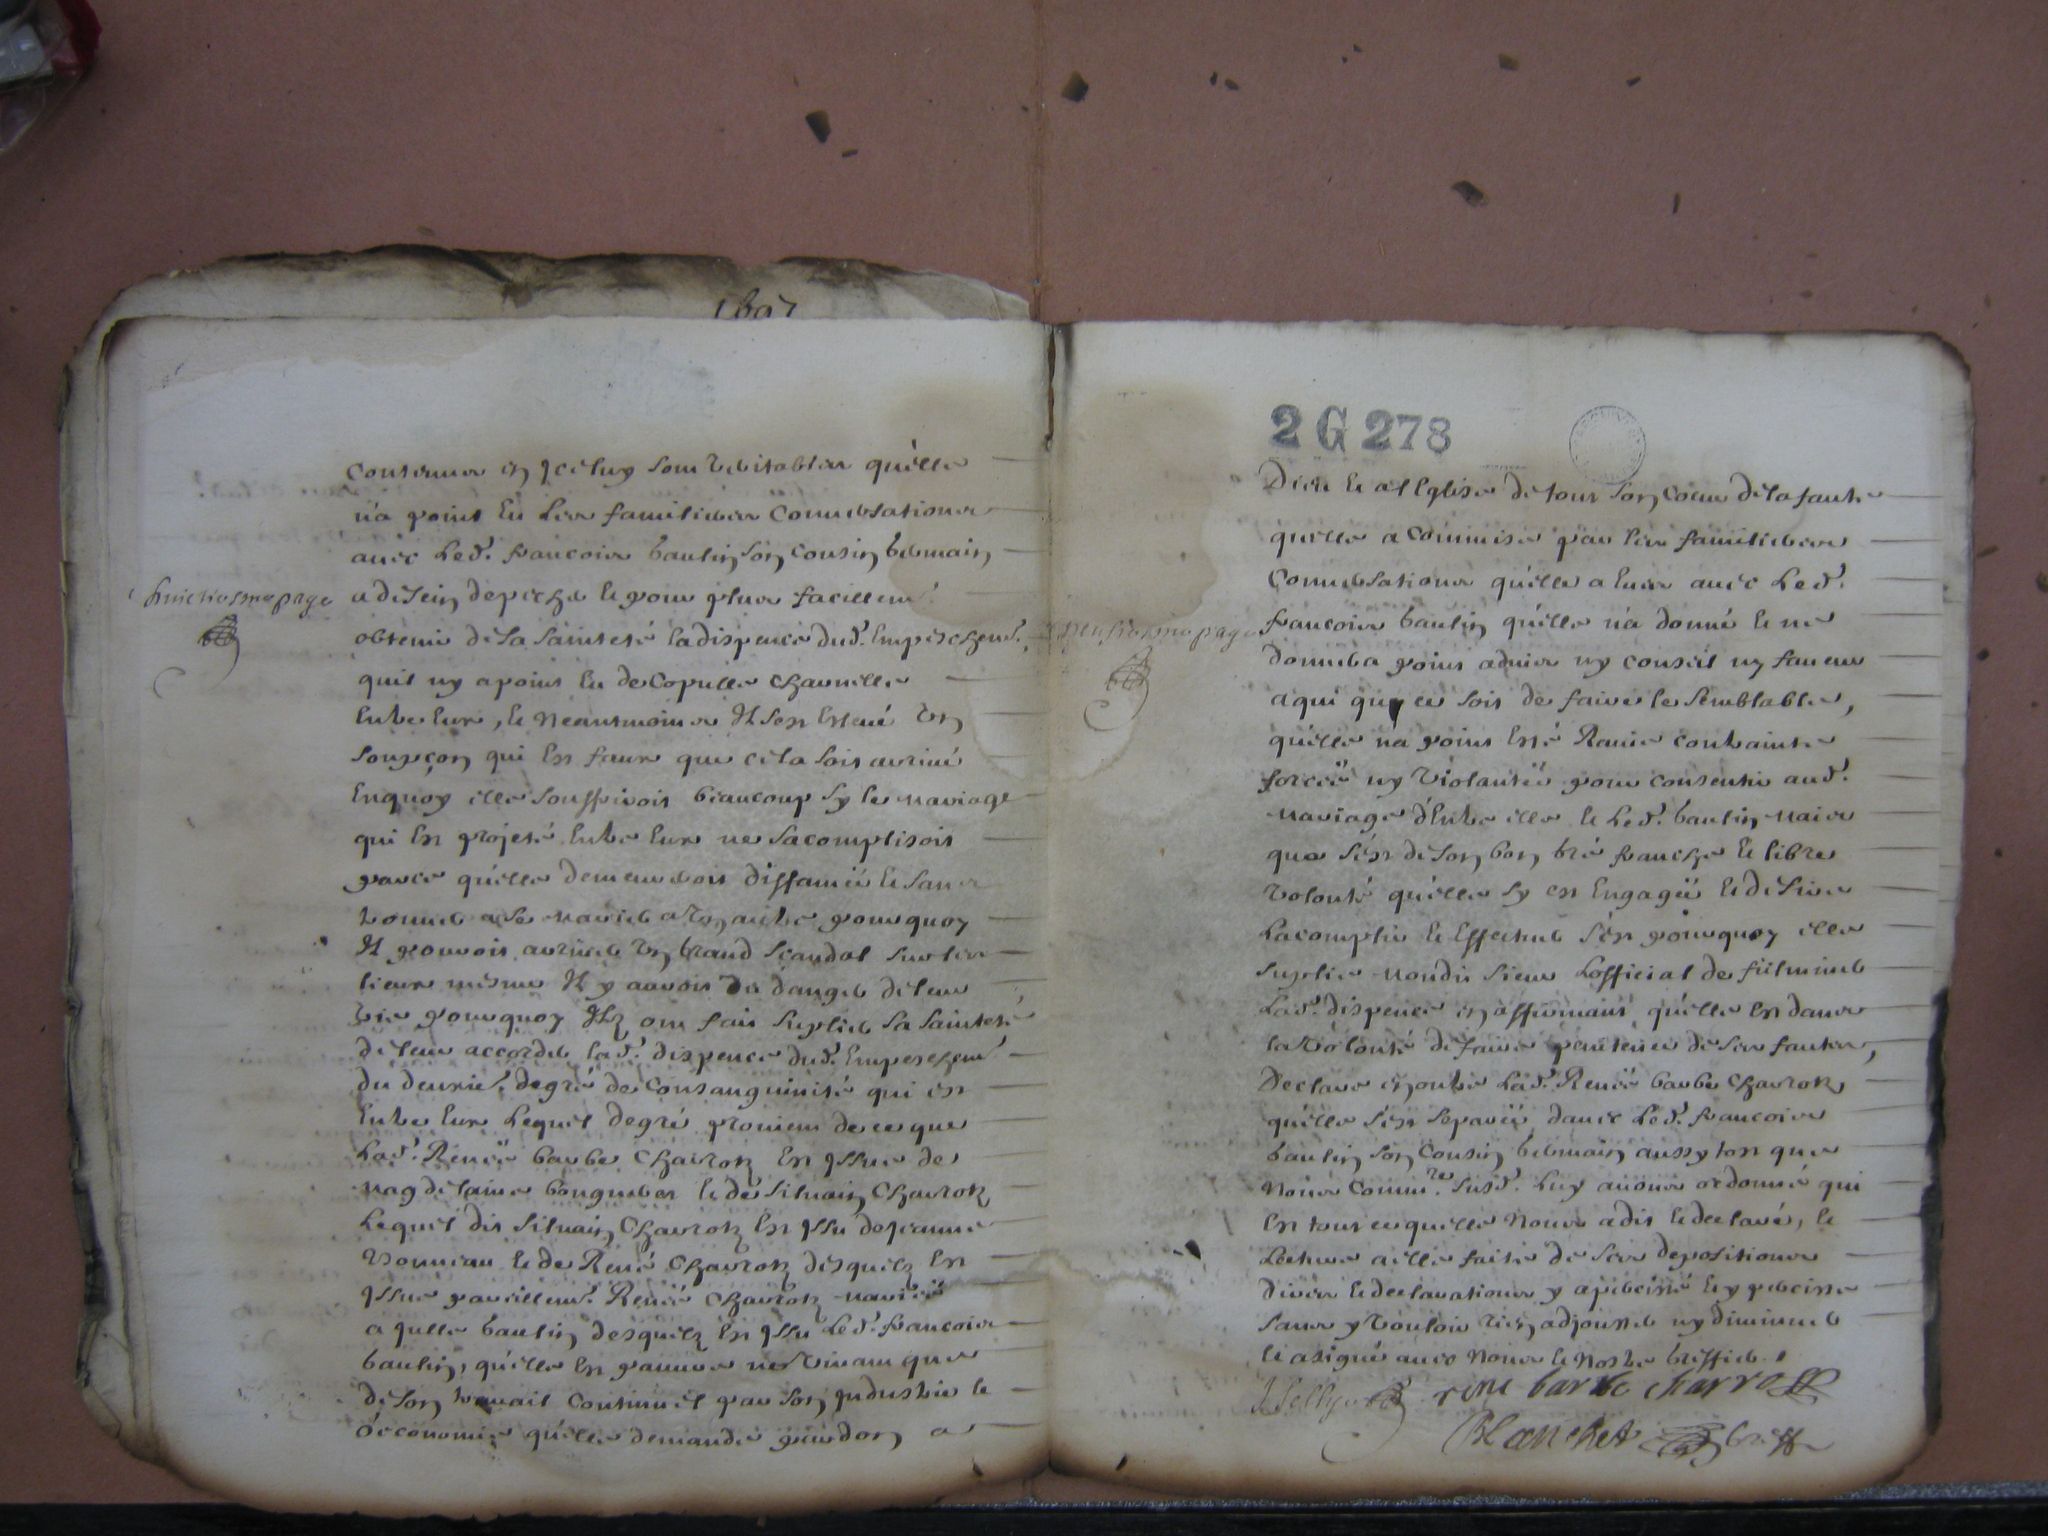 1697
contenues en jceluy sont veritables quelle
n'a point Eu Les familieres Conversations
avec Led. francois baulin son cousin germain
a desein depecher le pour plus facillemt.
huictiesme page
obtenir de sa sainteté la dispence dud. Empeschemt.,
quil ny a point Eu de Copulle charnelle
Entre Eux, le Neantmoins Il sest Esleué Un
soupçon qui Est faux que cela soit arriué
Enquoy elle souffriroit beaucoup sy le mariage
qui Est projeté Entre Eux ne sacomplisoit
parce quelle demeureroit diffamée le sans
trouuer a se marier a Un autre pourquoy
Il pouroit arriuer Un grand scandal sur les
lieux mesme Il y auroit du danger de leur
Vie pourquoy Ilz ont fait suplier sa sainteté
de leur accorder lad. dispence dud. Empeschemt
du deuxie. degré de Consanguinité qui est
Entre Eux Lequel degré prouient de ce que
Lad. Renée barbe Charrok Est Issue de
Magdelaine bougrebas le de siluain Charrok
Lequel dit siluain Charrok Est Issu de jeanne
le de René Charrok desquelz Est
Issue pareillemt. Renée Charrok mariée
a baulin desquelz Est Issu Led. francois
baulin, quelle Est pauure ne Viuant que
de son trauail Continuel par son jndustrie le
oéconomie quelle demande pardon a
2 G 278
Dieu le a lEglise de tout son coeur de la faute
quelle a Commise par les familieres
Conversations quelle a Eues avec Led.
neufiesme page
francois baulin quelle n'a donné le ne
donnera point aduis ny conseil ny faueur
a qui que ce soit de faire le semblable,
quelle n'a point Esté Rauie contrainte
forcée ny Violantée pour consentir aud.
mariage d'Entre elle le Led. baulin mais
que s'est de son bon gré franche le libre
Volonté quelle sy est Engagée le desire
Lacomplir le Effectuer s'est pourquoy elle
suplie mondit sieur Lofficial de fulminer
Lad. dispence en affirmant quelle Est dans
la Volonté de faire penitence de ses fautes,
Declare en outre Lad. Renée barbe Charrok
quelle s'est separée dauec Led. francois
baulin son Cousin germain aussy tost que
Nous Commre. susd. Luy auons ordonné qui
Est tout ce quelle Nous a dit le declaré, le
Lecture a elle faite de ses depositions
dires le declarations y a persisté le y persiste
sans y Vouloir rien adjouster ny diminuer
le a signé auec Nous le Nostre greffier.
rene barbe charro
Blanchet greff